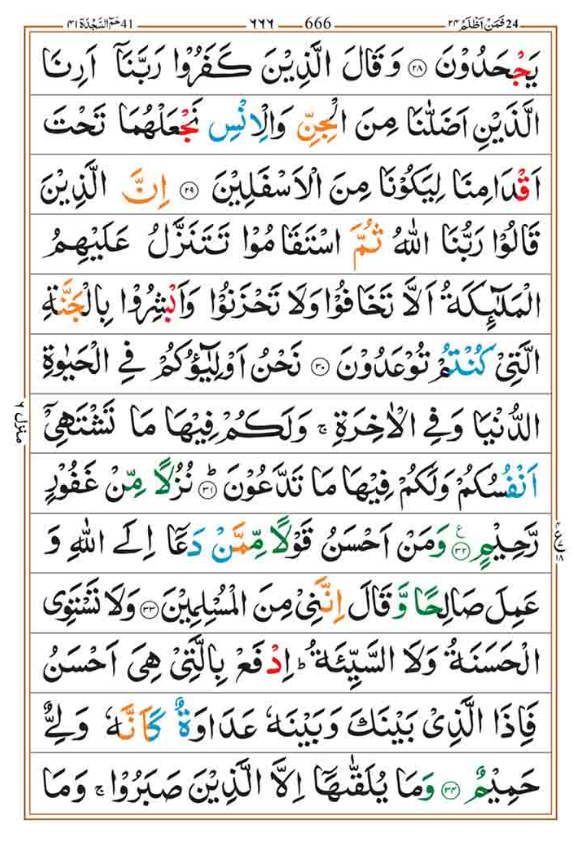 24 فَمَنْ اَظْلَمُ ٢٤ 666 ٦٦٦ 41 حٰمٓ السَّجْدَة ٤١
يَجْحَدُوْنَ ۝٢٨ وَقَالَ الَّذِيْنَ كَفَرُوْا رَبَّنَاۤ اَرِنَا
الَّذَيْنِ اَضَلّٰنَا مِنَ الْجِنِّ وَالْاِنْسِ نَجْعَلْهُمَا تَحْتَ
اَقْدَامِنَا لِيَكُوْنَا مِنَ الْاَسْفَلِيْنَ ۝٢٩ اِنَّ الَّذِيْنَ
قَالُوْا رَبُّنَا اللّٰهُ ثُمَّ اسْتَقَامُوْا تَتَنَزَّلُ عَلَيْهِمُ
الْمَلٰٓئِكَةُ اَلَّا تَخَافُوْا وَلَا تَحْزَنُوْا وَاَبْشِرُوْا بِالْجَنَّةِ
الَّتِيْ كُنْتُمْ تُوْعَدُوْنَ ۝٣٠ نَحْنُ اَوْلِيٰٓؤُكُمْ فِي الْحَيٰوةِ
الدُّنْيَا وَفِي الْاٰخِرَةِ ۚ وَلَكُمْ فِيْهَا مَا تَشْتَهِيْۤ
اَنْفُسُكُمْ وَلَكُمْ فِيْهَا مَا تَدَّعُوْنَ ۝٣١ؕ نُزُلًا مِّنْ غَفُوْرٍ
رَّحِيْمٍ ۝٣٢ ع وَمَنْ اَحْسَنُ قَوْلًا مِّمَّنْ دَعَاۤ اِلَى اللّٰهِ وَ
عَمِلَ صَالِحًا وَّقَالَ اِنَّنِيْ مِنَ الْمُسْلِمِيْنَ ۝٣٣ وَلَا تَسْتَوِى
الْحَسَنَةُ وَلَا السَّيِّئَةُ ؕ اِدْفَعْ بِالَّتِيْ هِيَ اَحْسَنُ
فَاِذَا الَّذِيْ بَيْنَكَ وَبَيْنَهٗ عَدَاوَةٌ كَاَنَّهٗ وَلِيٌّ
حَمِيْمٌ ۝٣٤ وَمَا يُلَقّٰىهَاۤ اِلَّا الَّذِيْنَ صَبَرُوْا ۚ وَمَا
منزل ٦